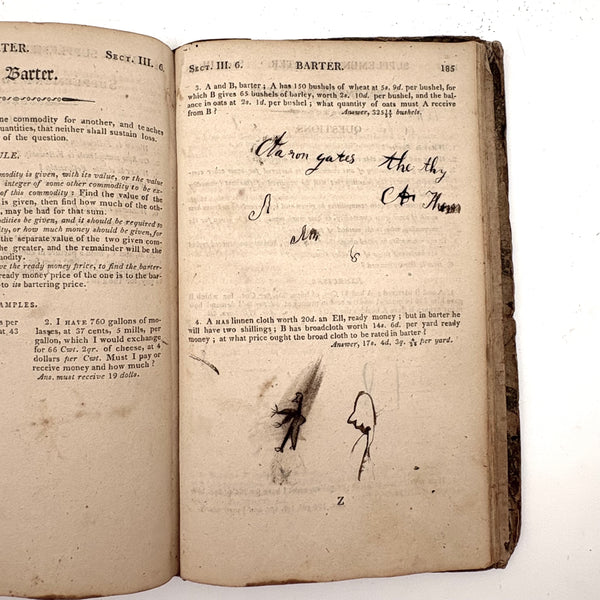 TER.
SECT. III. 6.
Barter.
ne commodity for another, and teaches
quantities, that neither shall sustain loss.
of the question.
ULE.
modity is given, with its value, or the value
integer of some other commodity to be ex-
of this commodity: Find the value of the
is given, then find how much of the oth-
may be had for that sum.
odities be given, and it should be required to
ity, or how much money should be given, for
the separate value of the two given com-
the greater, and the remainder will be the
modity.
ve the ready money price, to find the barter-
ready money price of the one is to the bar-
to its bartering price.
AMPLES.
s per
at 43
2. I HAVE 760 gallons of mo-
lasses, at 37 cents, 5 mills, per
gallon, which I would exchange
for 66 Cwt. 2qr. of cheese, at 4
dollars per Cwt. Must I pay or
receive money and how much?
Ans. must receive 19 dolls.
SECT. III. 6.
BARTER.
185
3. A and B, barter; A has 150 bushels of wheat at 5s. 9d. per bushel, for
which B gives 65 bushels of barley, worth 2s. 10d. per bushel, and the bal-
ance in oats at 2s. 1d. per bushel; what quantity of oats must A receive
from B?
Answer, 325 bushels.
Aaron gates the thy
A
4. A HAS linnen cloth worth 20d. an Ell, ready money; but in barter he
will have two shillings; B has broadcloth worth 14s. 6d. per yard ready
money; at what price ought the broad cloth to be rated in barter?
Answer, 17s. 4d. 3q. per yard.
Z